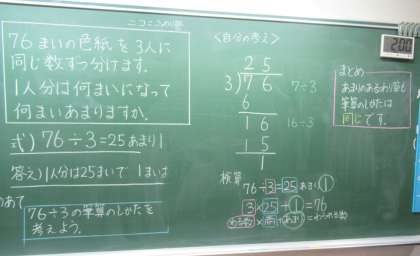 76まいの色紙を3人に
同じ数ずつ分けます.
1人分は何まいになって
何まいあまりますか.
式) 76÷3=25あまり1
答え) 1人分は25まいで 1まい
めあて
76÷3の筆算のしかたを
考えよう.
<自分の考え>
25
3)76
7÷3
6
16
16÷3
15
1
検算
76÷3=25あまり1
3×25+1=76
まとめ
あまりのあるわり算も
筆算のしかたは
同じです.